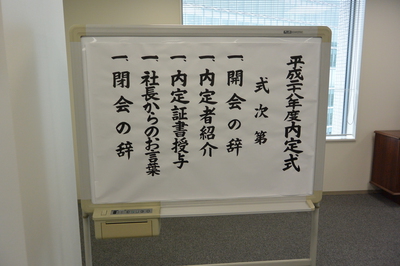 平成二十八年度内定式
式次第
一、開会の辞
一、内定者紹介
一、内定証書授与
一、社長からのお言葉
一、閉会の辞